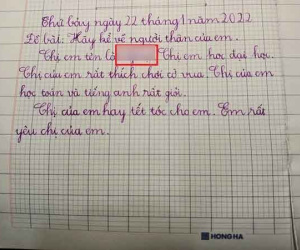 Thứ bảy ngày 22 tháng 1 năm 2022
Đề bài: Hãy kể về người thân của em.
Chị em tên là Chị em học đại học.
Chị của em rất thích chơi cờ vua. Chị của em
học toán và tiếng anh rất giỏi.
Chị của em hay tết tóc cho em. Em rất
yêu chị của em.
HONG HA